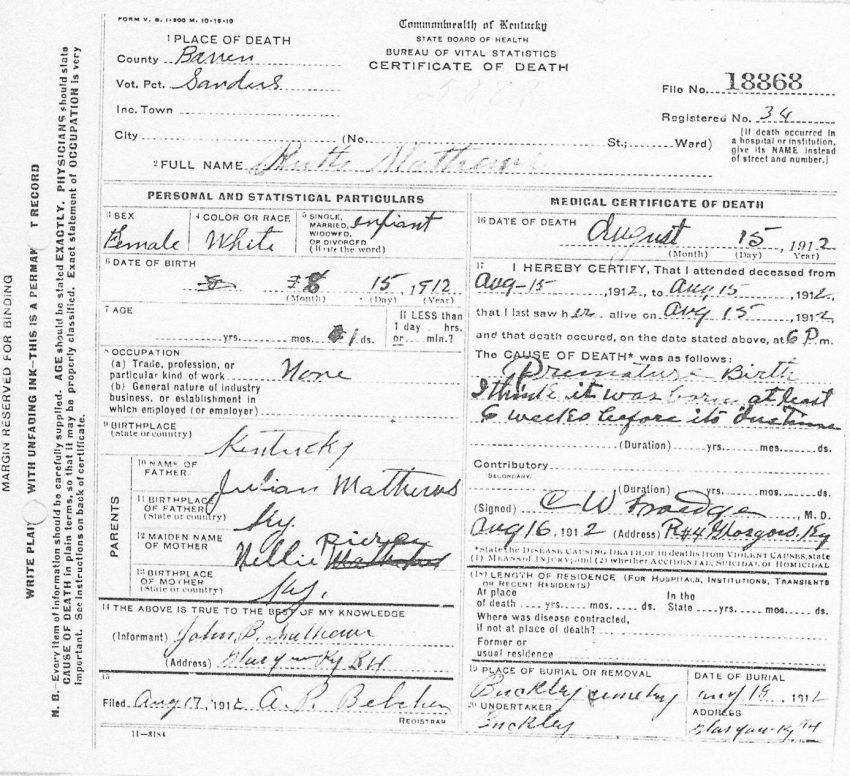 FORM V. S. 1-500 M. 10-15-10
Commonwealth of Kentucky
STATE BOARD OF HEALTH
BUREAU OF VITAL STATISTICS
CERTIFICATE OF DEATH
1 PLACE OF DEATH
County Barren
Vot. Pct. Sanders
Inc. Town
City (No. St.; Ward)
File No. 18868
Registered No. 34
[If death occurred in
a hospital or institution,
give its NAME instead
of street and number.]
2 FULL NAME Ruth Mathews
PERSONAL AND STATISTICAL PARTICULARS
3 SEX
Female
4 COLOR OR RACE
White
5 SINGLE,
MARRIED,
WIDOWED,
OR DIVORCED
(Write the word)
Infant
6 DATE OF BIRTH
8 15, 1912
(Month) (Day) (Year)
7 AGE
yrs. mos. 1 ds.
If LESS than
1 day hrs.
or min.?
8 OCCUPATION
(a) Trade, profession, or
particular kind of work None
(b) General nature of industry
business, or establishment in
which employed (or employer)
9 BIRTHPLACE
(State or country)
Kentucky
PARENTS
10 NAME OF
FATHER
Julian Mathews
11 BIRTHPLACE
OF FATHER
(State or country)
Ky.
12 MAIDEN NAME
OF MOTHER
Nellie
13 BIRTHPLACE
OF MOTHER
(State or country)
Ky.
14 THE ABOVE IS TRUE TO THE BEST OF MY KNOWLEDGE
(Informant) John B. Mathews
(Address) Glasgow Ky
15
Filed Aug 17, 1912 A. P. Belcher
REGISTRAR
11-3184
MEDICAL CERTIFICATE OF DEATH
16 DATE OF DEATH August 15, 1912
(Month) (Day) Year)
17 I HEREBY CERTIFY, That I attended deceased from
Aug-15, 1912, to Aug 15, 1912,
that I last saw her alive on Aug 15, 1912,
and that death occured, on the date stated above, at 6 P. m.
The CAUSE OF DEATH* was as follows:
Premature Birth
I think it was born at least
6 weeks before its due time
(Duration) yrs. mos. ds.
Contributory
SECONDARY.
(Duration) yrs. mos. ds.
(Signed) C W Froedge, M. D.
Aug 16, 1912 (Address) R#4 Glasgow, Ky
*State the DISEASE CAUSING DEATH, or in deaths from VIOLENT CAUSES, state
(1) MEANS OF INJURY; and (2) whether ACCIDENTAL, SUICIDAL OR HOMICIDAL
(18) LENGTH OF RESIDENCE (FOR HOSPITALS, INSTITUTIONS, TRANSIENTS
OR RECENT RESIDENTS)
At place In the
of death yrs. mos. ds. State yrs. mos. ds.
Where was disease contracted,
if not at place of death?
Former or
usual residence
19 PLACE OF BURIAL OR REMOVAL
Buckley cemetery
DATE OF BURIAL
1912
20 UNDERTAKER
Buckley
ADDRESS
Glasgow Ky
MARGIN RESERVED FOR BINDING
WRITE PLAI WITH UNFADING INK—THIS IS A PERMAN T RECORD
N. B. Every item of information should be carefully supplied. AGE should be stated EXACTLY. PHYSICIANS should state
CAUSE OF DEATH in plain terms, so that it may be properly classified. Exact statement of OCCUPATION is very
important. See instructions on back of certificate.